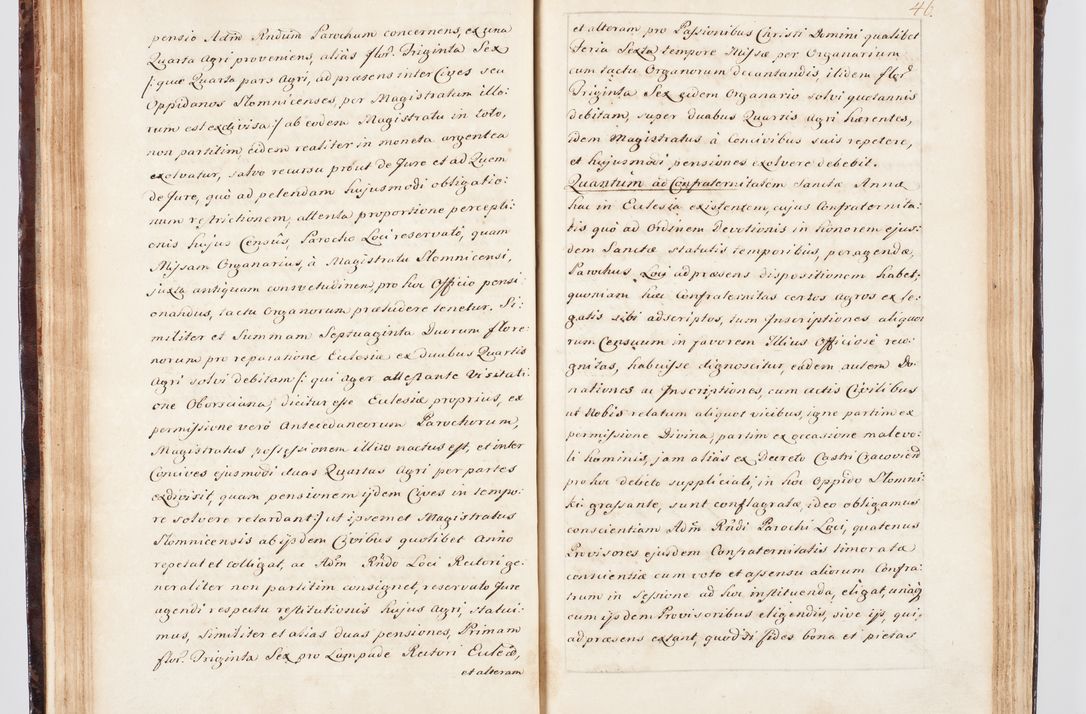 pensio Adm Rndum Parochum concernens, ex una
Quarta Agri proveniens, alias flor. Triginta Sex
/: quæ Quarta pars Agri, ad præsens inter Cives seu
Oppidanos Slomnicenses, per Magistratum illo-
rum est exdivisa :/ ab eodem Magistratu in toto,
non partitim, eidem realiter in moneta argentea
exolvatur, salvo recursu prout de Jure et ad Quem
de Jure, quò ad petendam hujusmodi obligatio:
num restrictionem, attenta proportione percepti:
onis hujus Censûs, Parocho Loci reservatô, quam
Missam Organarius, à Magistratu Slomnicensi,
juxta antiquam consvetudinem, pro hoc Officio pensi
onandus, tactu Organorum præludere tenetur. Si:
militer et Summam Septuaginta Duorum flore:
norum pro reparatione Ecclesiæ ex duabus Quartis
Agri solvi debitam /: qui ager attestante Visitati:
one Oborsciana, dicitur esse Ecclesiæ proprius, ex
permissione verò Antecedaneorum Parochorum,
Magistratus, possessionem illius nactus est, et inter
Concives ejusmodi duas Quartas Agri per partes
exdivisit, quam pensionem ijdem Cives in tempo:
re solvere retardant :/ ut ipsemet Magistratus
Slomnicensis ab ijsdem Civibus quolibet Anno
repetat et colligat, ac Adm Rndo Loci Rectori ge:
neraliter non partitim consignet, reservato Jure
agendi respectu restitutionis hujus Agri, statui:
mus, similiter et alias duas pensiones, Primam
flor. Triginta Sex pro Lampade Rectori Ecclæ,
et alteram
46.
et alteram pro Passionibus Christi Domini qualibet
Feria Sexta tempore Missæ per Organarium
cum tactu Organorum decantandis, itidem flor
Triginta Sex eidem Organario solvi quotannis
debitam, super duabus Quartis agri hærentes,
idem Magistratus à Concivibus suis repetere,
et hujusmodi pensiones exolvere debebit.
Quantum ad Confraternitatem Sanctæ Annæ
hac in Ecclesia existentem, cujus Confraternita:
tis quò ad Ordinem Devotionis in honorem ejus:
dem Sanctæ statutis temporibus, peragendæ,
Parochus Loci ad præsens dispositionem habet,
quoniam hæc Confraternitas certos agros ex le:
gatis sibi adscriptos, tum Inscriptiones aliquo
rum Censuum in favorem Illius Officiosè reco:
gnitas, habuisse dignoscitur, eædem autem Do:
nationes ac Inscriptiones, cum actis Civilibus
ut Nobis relatum aliquot vicibus, igne partim ex
permissione Divina, partim ex occasione malevo:
li hominis, jam aliàs ex Decreto Castri Cracovien
pro hoc debite suppliciati, in hoc Oppido Slomni:
ki grassante, sunt conflagratæ, ideo obligamus
conscientiam Adm Rndi Parochi Loci, quatenus
Provisores ejusdem Confraternitatis timoratæ
conscientiæ cum voto et assensu aliorum Confra:
trum in Sessione ad hoc instituenda, eligat, unàq
cum ijsdem Provisoribus eligendis, sive ijs, qui,
ad præsens extant, quodsi fides bona et pietas